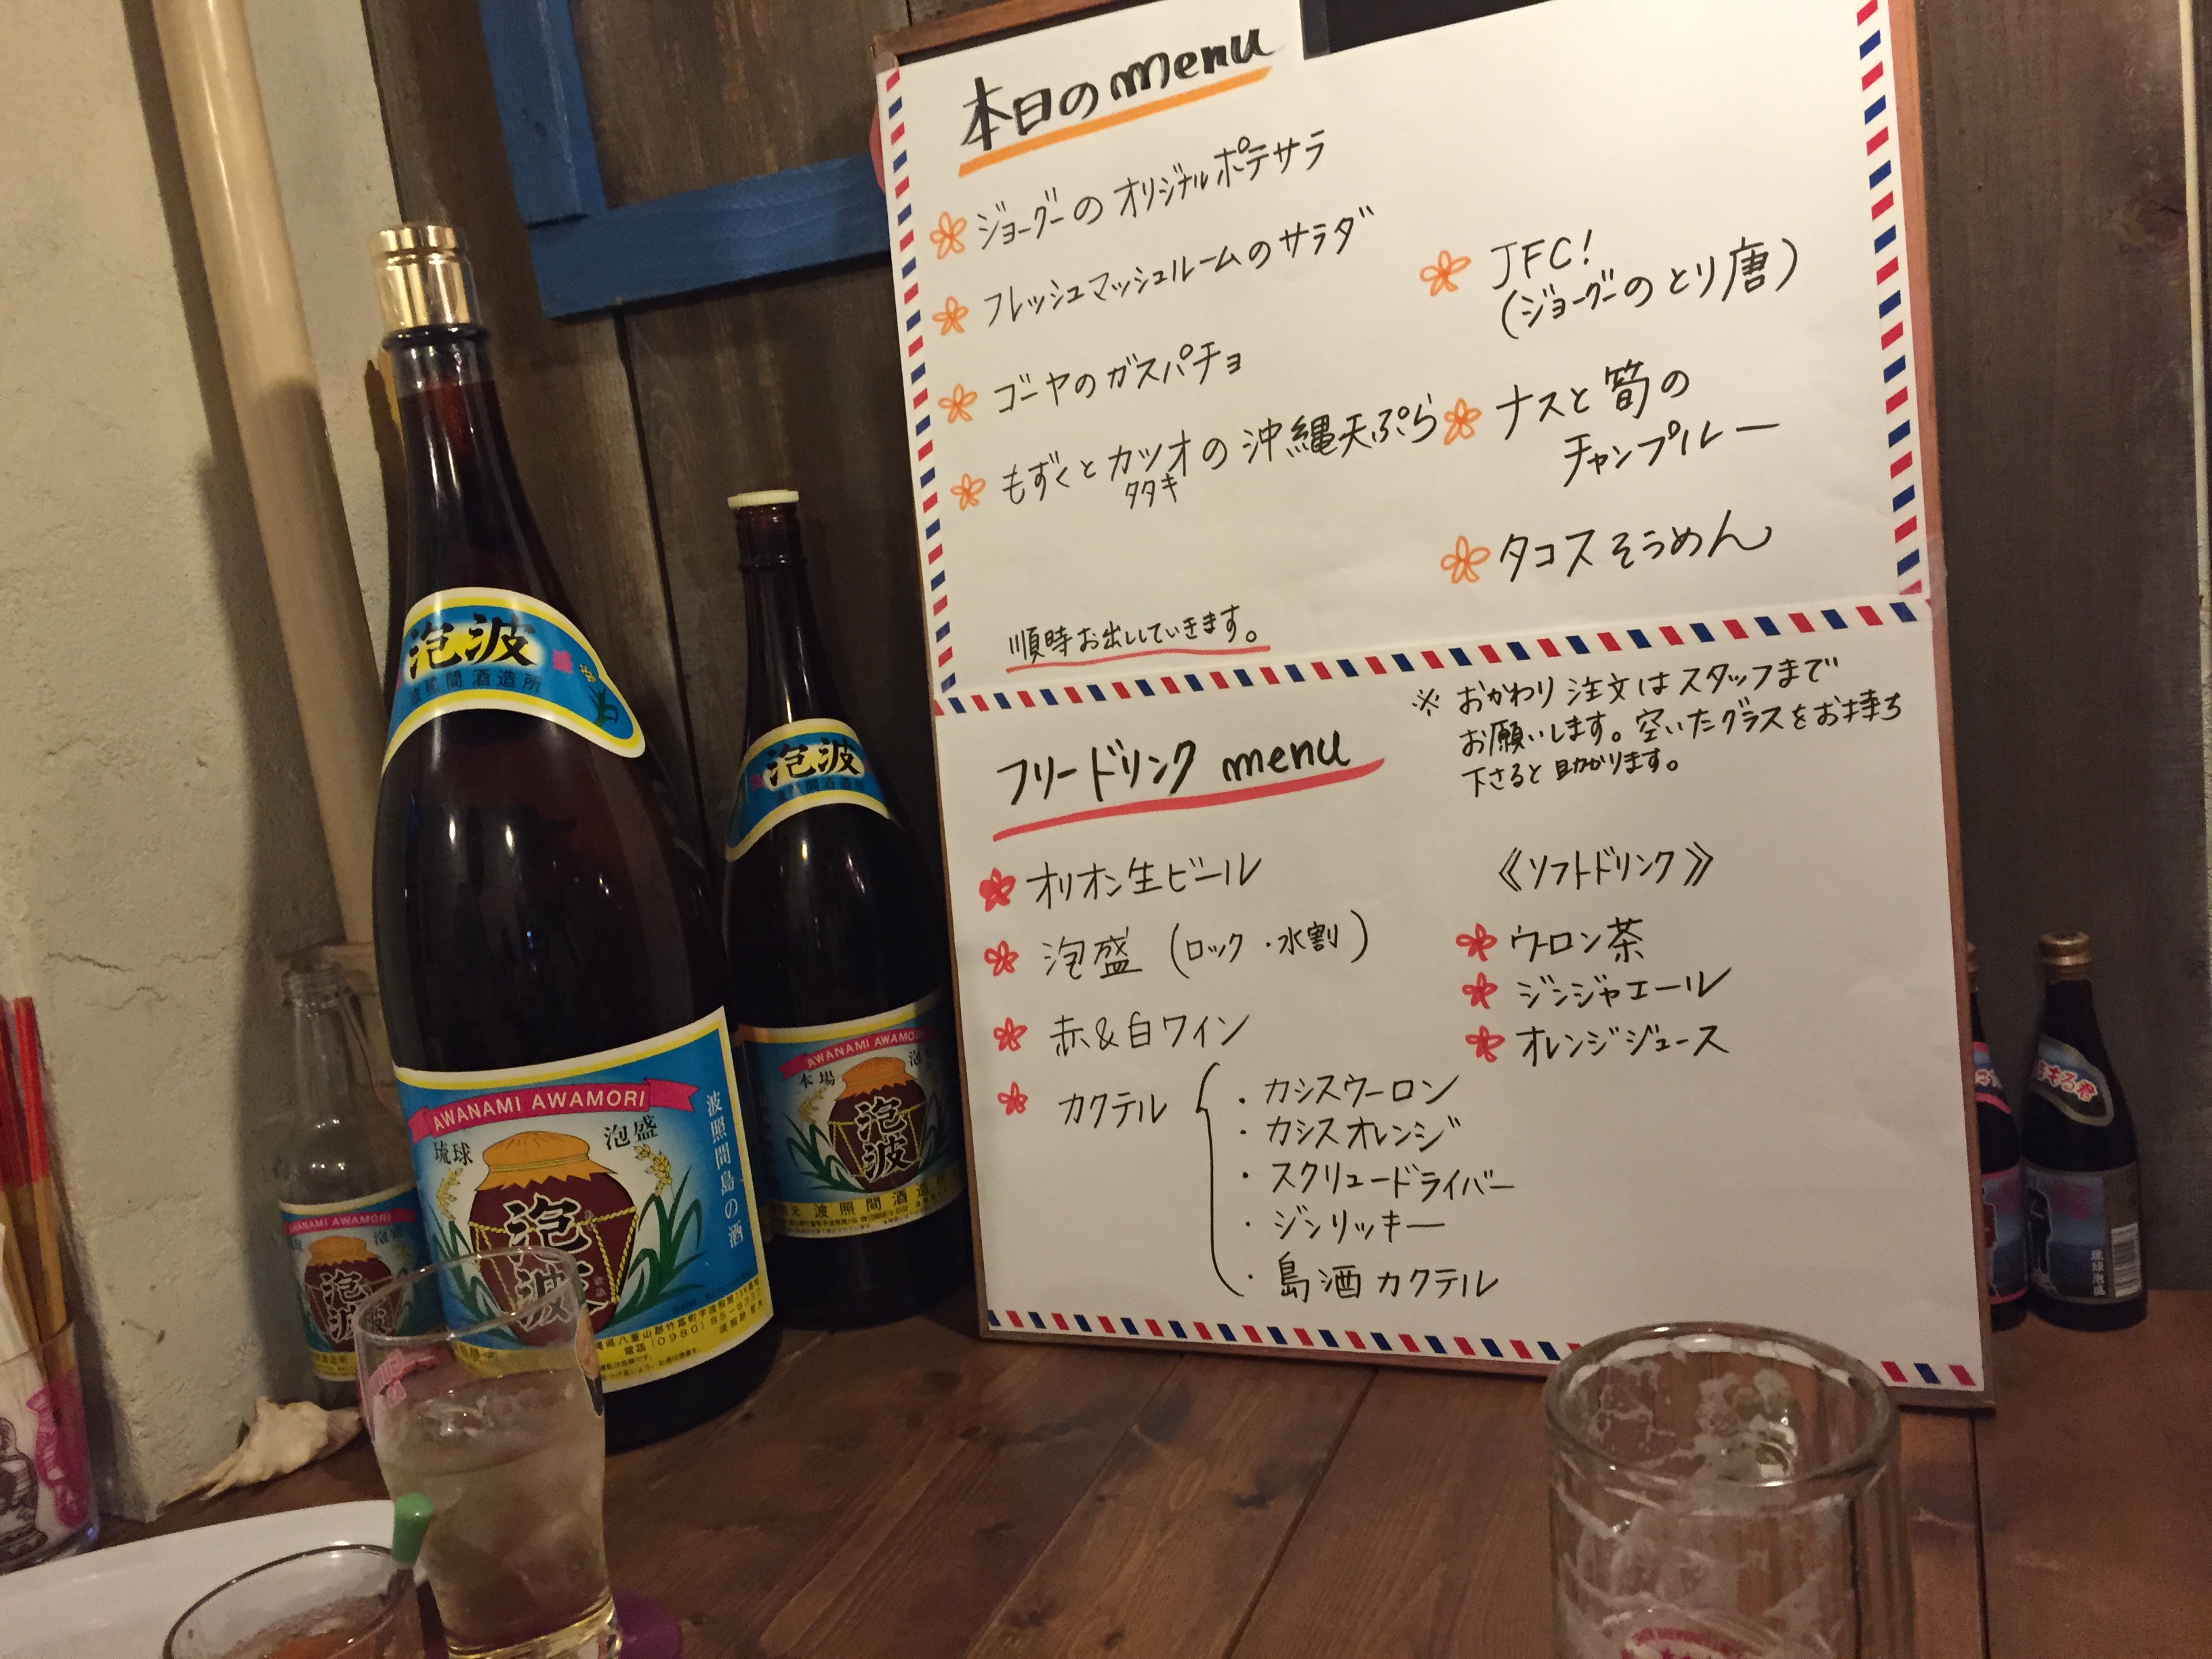 本日のmenu
ジョーグーのオリジナルポテサラ
フレッシュマッシュルームのサラダ
ゴーヤのガスパチョ
もずくとカツオの沖縄天ぷら
タタキ
順時お出ししていきます。
JFC!
(ジョーグーのとり唐)
ナスと筍の
チャンプルー
タコスそうめん
フリードリンク menu
※おかわり注文はスタッフまで
お願いします。空いたグラスをお持ち
下さると助かります。
オリオン生ビール
泡盛(ロック・水割)
赤&白ワイン
カクテル
・カシスウーロン
・カシスオレンジ
・スクリュードライバー
・ジンリッキー
・島酒カクテル
《ソフトドリンク》
ウーロン茶
ジンジャエール
オレンジジュース
泡波
波照間酒造所
AWANAMI AWAMORI
琉球 泡盛
泡波
波照間島の酒
泡波
AWANAMI AWAMORI
本場
泡波
波照間酒造
AWANAMI AWAMORI
泡波
琉球泡盛